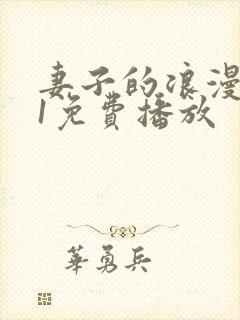 妻子的浪漫
1免費播放
華勇兵